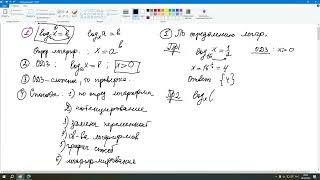 ① log_a x = b
log_a x = b
опред. логариф.: x = a^b
② ОДЗ: log_a x = b, x > 0
③ ОДЗ-сложно, то проверка.
④ Способы: 1) по опред. логарифма
2) потенцирование
3) замена переменной
4) св-ва логарифмов
5) график. способ
6) логарифмирование
① По определению логар.
Пр1 log_16 x = 1/2 ОДЗ: x > 0
x = 16^{1/2} = 4
Ответ {4}
Пр2 log_x (